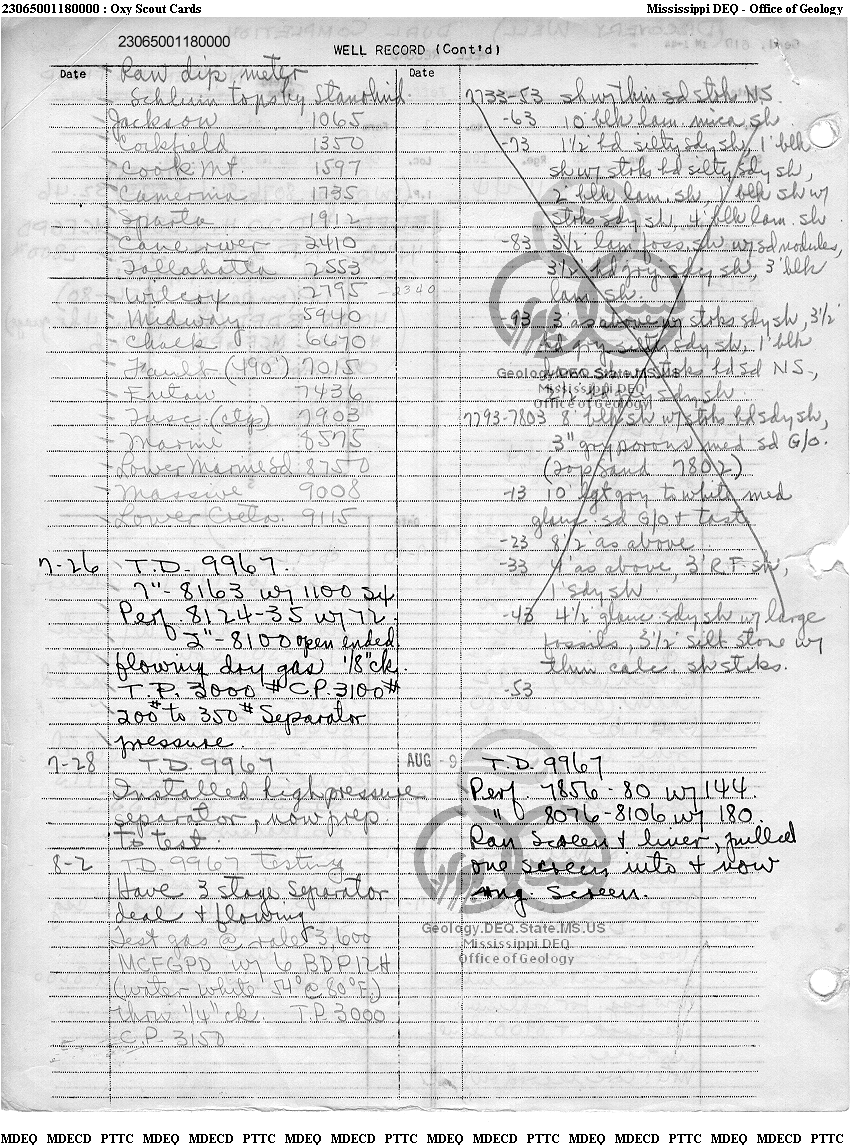 23065001180000 : Oxy Scout Cards
Mississippi DEQ - Office of Geology
23065001180000
WELL RECORD (Cont'd)
Date
Date
Ran dip meter
Schlum tops by Stanolind
Jackson 1065
Cockfield 1350
Cook Mt. 1597
Camerina 1735
Sparta 1912
Cane River 2410
Tallahatta 2553
Wilcox 2795
Midway 5940
Chalk 6670
Fault (490') 7015
Eutaw 7436
Tusc. 7903
Marine 8575
Lower Marine Sd 8750
Massive 9008
Lower Creta. 9115
7-26 T.D. 9967.
7"- 8163 w/ 1100 sx
Perf 8124-35 w/ 72.
2"- 8100 open ended
flowing dry gas 1/8" ck.
T.P. 3000 # C.P. 3100#
200# to 350# Separator
pressure.
7-28 T.D. 9967
Installed high pressure
separator, now prep
to test.
8-2 T.D. 9967 testing
Have 3 stage separator
deal + flowing
Test gas @ rate 3,600
MCFGPD w/ 6 BDP12H
(water white 54° @ 80°F.)
thru 1/4" ck. T.P. 3000
C.P. 3150
2340
7733-53 sh w/ thin sd stks NS.
-63 10' blk lam. mica. sh.
-73 1 1/2' hd silty sdy sh, 1' blk
sh w/ stks hd silty sdy sh,
2' blk lam. sh, 1' blk sh w/
stks sdy sh, 4' blk lam. sh.
-83 3 1/2' lam foss. sh w/ sd nodules,
3 1/2' hd gry sdy sh, 3' blk
lam sh.
-93 3' as above w/ stks sdy sh, 3 1/2'
hd gry silty sdy sh, 1' blk
stks hd sd NS.,
sdy sh.
7793-7803 8' blk sh w/ stks hd sdy sh,
3" gry porous med sd G/O.
(top sand 7802)
-13 10' lgt gry to white med
glauc. sd G/O + taste
-23 8 1/2' as above
-33 4' as above, 3' R.F. sh,
1' sdy sh
-43 4 1/2' glauc sdy sh w/ large
fossils, 3 1/2' silt stone w/
thin calc. sh stks.
-53
Geology.DEQ.State.MS.US
Mississippi DEQ
Office of Geology
AUG - 9 T.D. 9967
Perf. 7856-80 w/ 144.
" 8076-8106 w/ 180.
Ran Screen & liner, pulled
one screen into & now
rng. Screen.
Geology.DEQ.State.MS.US
Mississippi DEQ
Office of Geology
MDEQ MDECD PTTC MDEQ MDECD PTTC MDEQ MDECD PTTC MDEQ MDECD PTTC MDEQ MDECD PTTC MDEQ MDECD PTTC